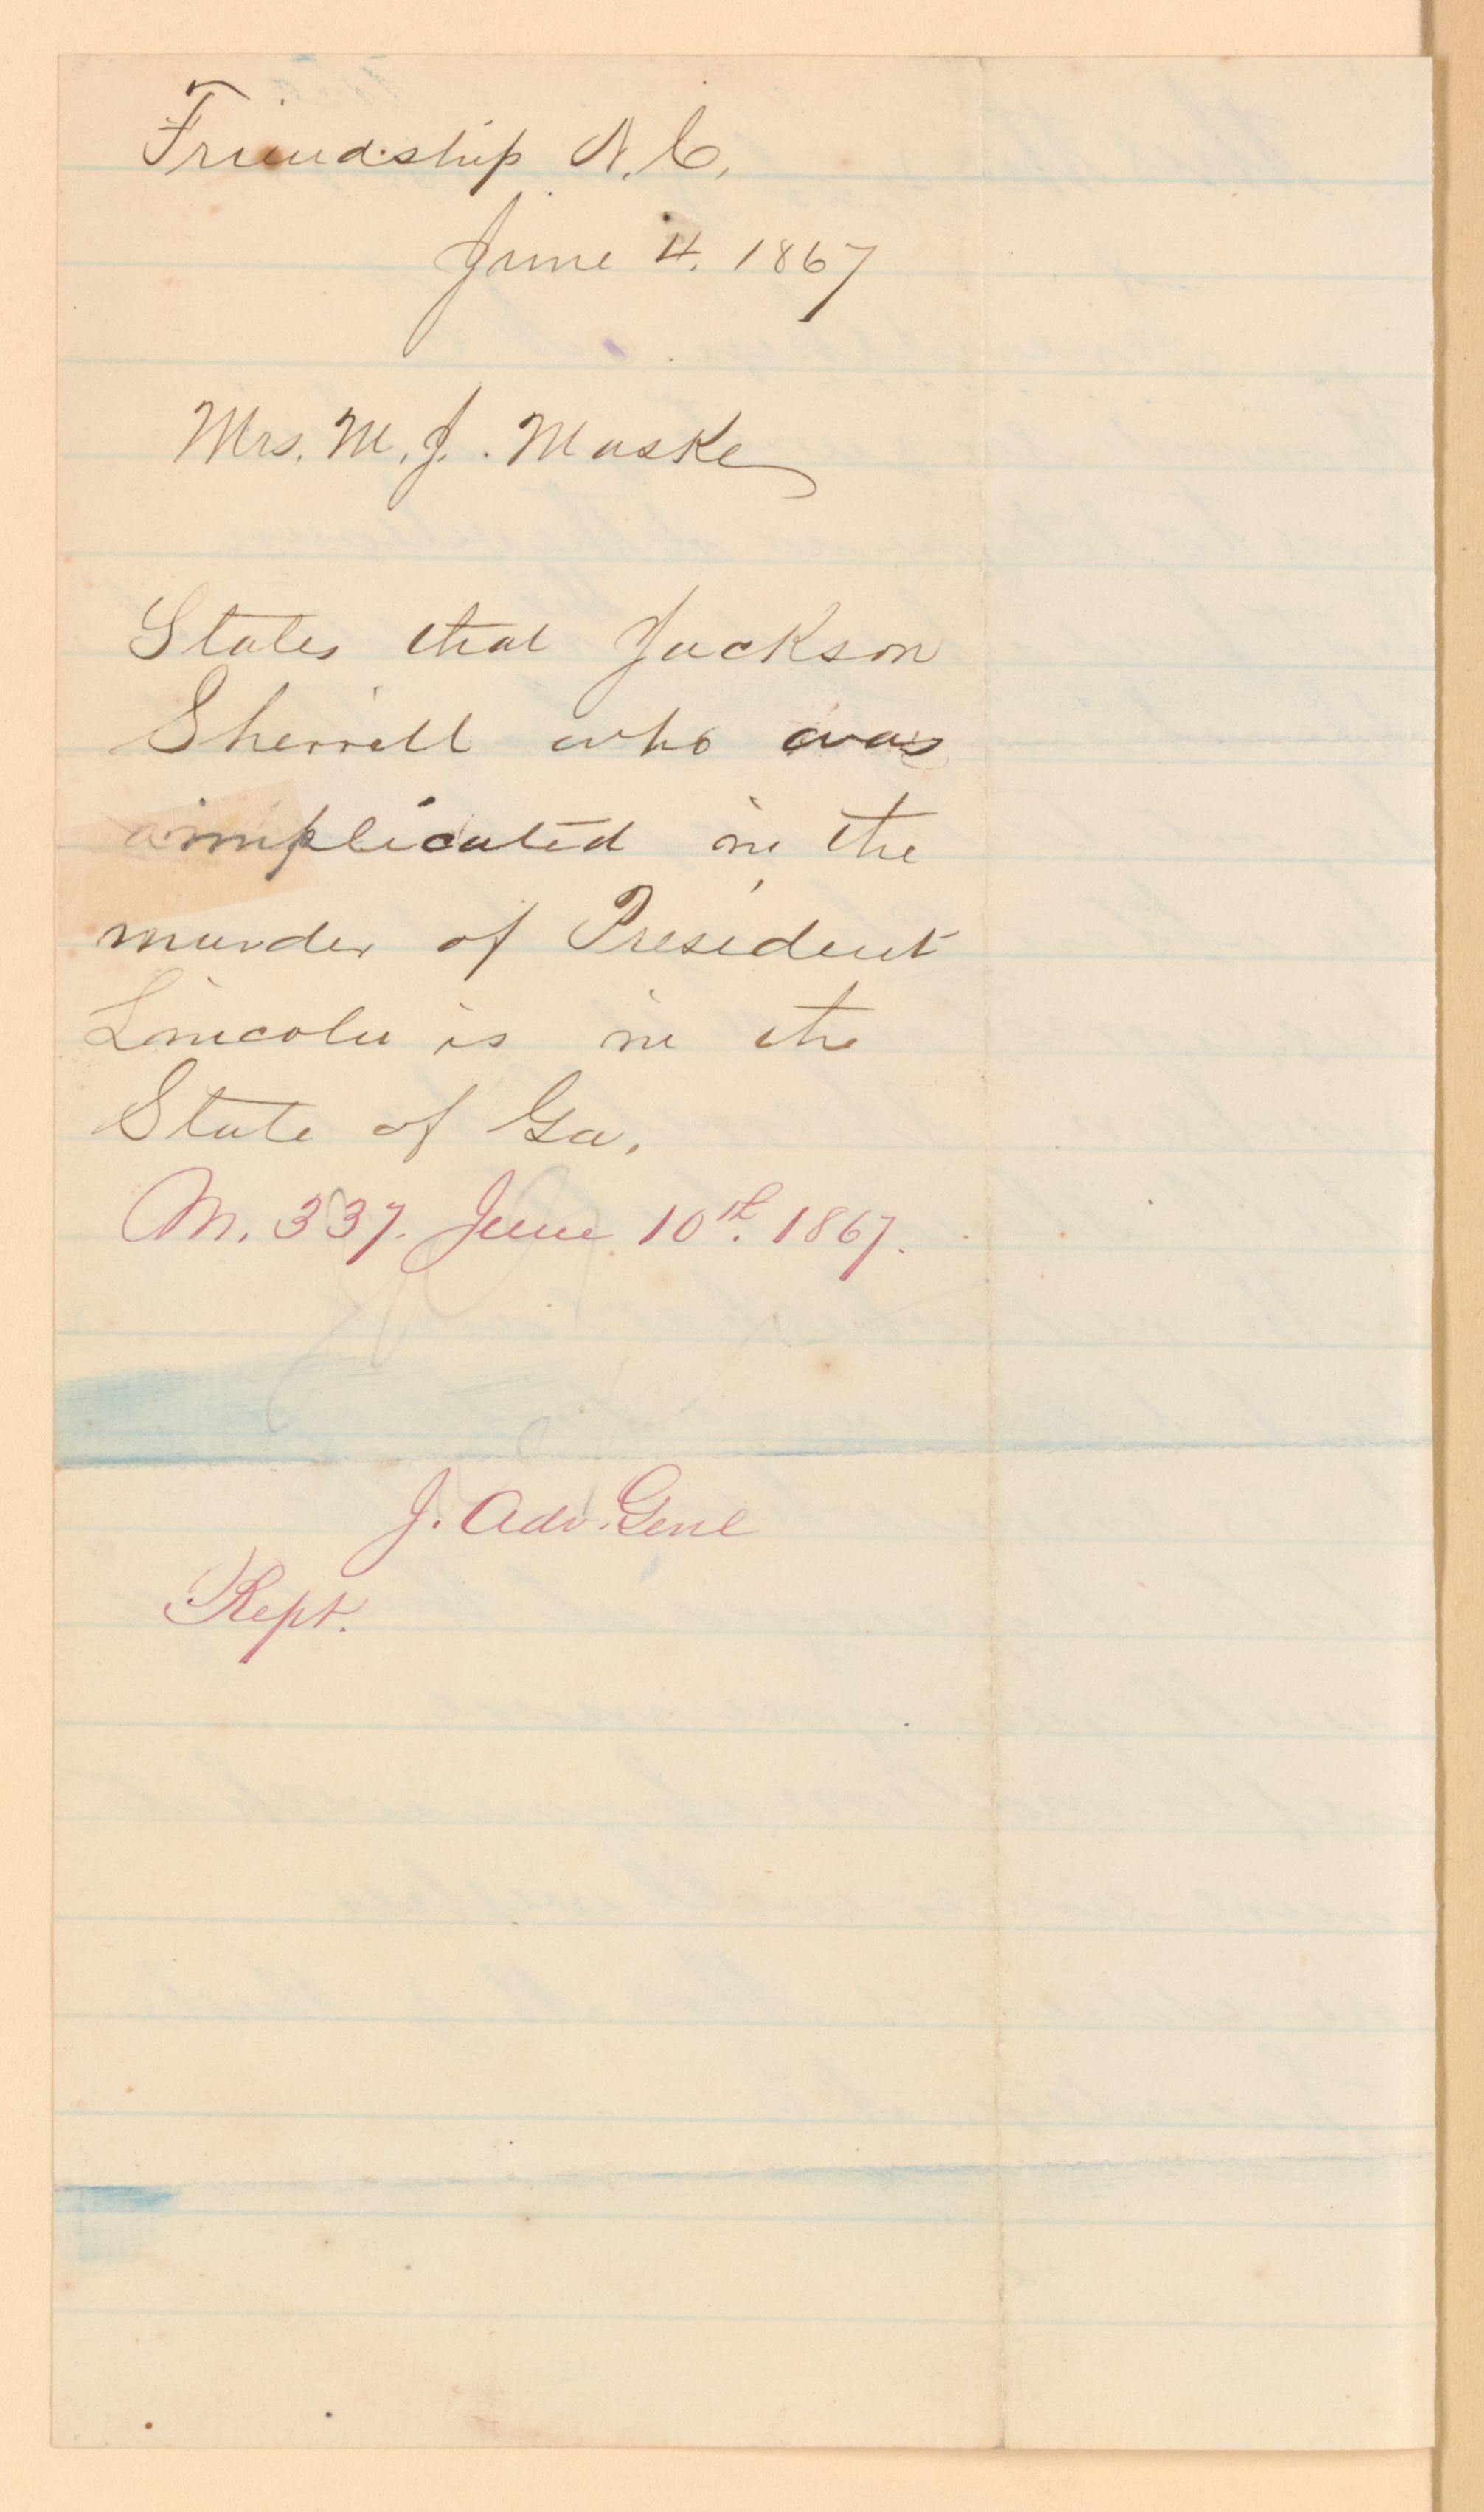 Friendship N.C.
June 4. 1867
Mrs. M. J. Maske
States that Jackson
Sherrell who was
implicated in the
murder of President
Lincoln is in the
State of Ga.
M. 337. June 10th. 1867.
J. Adv. Genl
Rept.